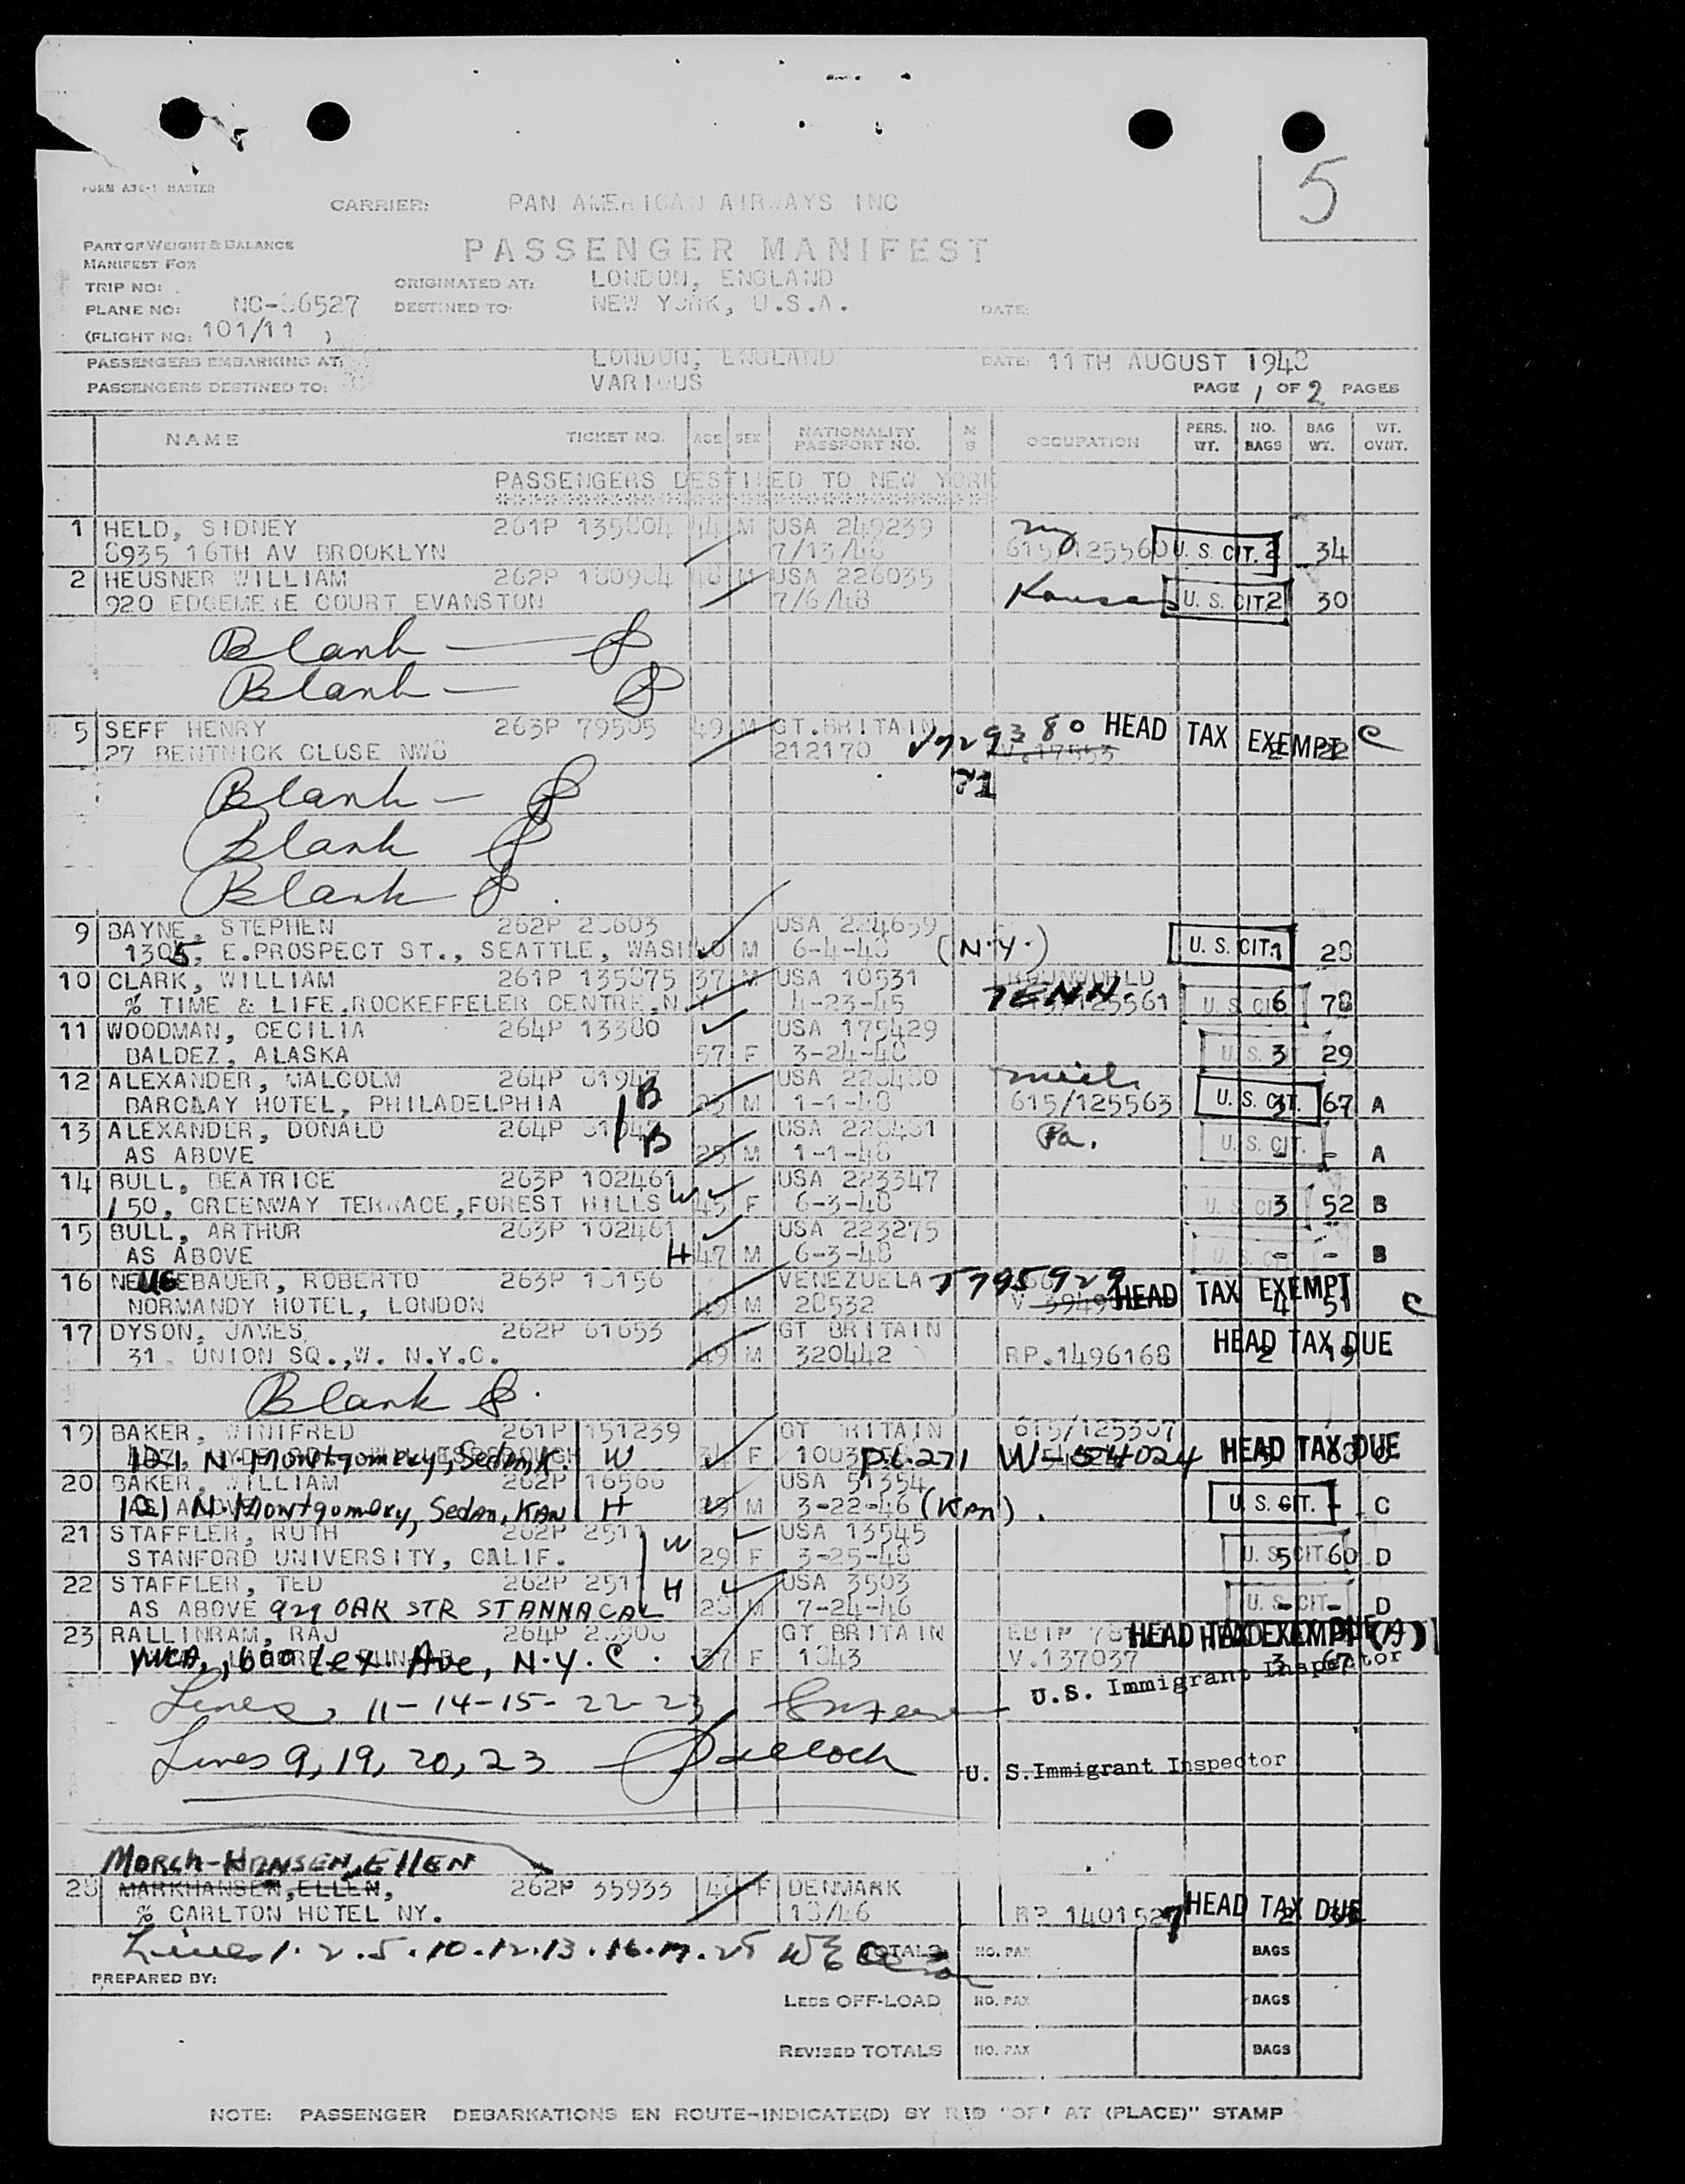 5
FORM A36-1 MASTER
CARRIER: PAN AMERICAN AIRWAYS INC
PART OF WEIGHT & BALANCE
MANIFEST FOR
PASSENGER MANIFEST
TRIP NO: ORIGINATED AT: LONDON, ENGLAND
PLANE NO: NC-86527 DESTINED TO: NEW YORK, U.S.A. DATE:
(FLIGHT NO: 101/11 )
PASSENGERS EMBARKING AT: LONDON, ENGLAND DATE: 11TH AUGUST 1948
PASSENGERS DESTINED TO: VARIOUS PAGE 1 OF 2 PAGES
NAME TICKET NO. AGE SEX NATIONALITY PASSPORT NO. M S OCCUPATION PERS. WT. NO. BAGS BAG WT. WT. OVWT.
PASSENGERS DESTINED TO NEW YORK
1 HELD, SIDNEY 261P 44 M USA 249239 ny
6935 16TH AV BROOKLYN 7/13/48 615/125560 U. S. CIT. 2 34
2 HEUSNER WILLIAM 262P M USA 226035
920 EDGEMERE COURT EVANSTON 7/6/48 Kansas U. S. CIT 2 30
Blank
Blank
5 SEFF HENRY 263P 79505 49 M GT.BRITAIN HEAD TAX EXEMPT C
27 BENTNICK CLOSE NW8 212170 V729380 V.17553 22
71
Blank
Blank
Blank
9 BAYNE, STEPHEN 262P USA
1305, E.PROSPECT ST., SEATTLE, WASH M 6-4-48 (N.Y.) U. S. CIT. 1 28
10 CLARK, WILLIAM 261P 135875 37 M USA 10531 ROUNWORLD
% TIME & LIFE,ROCKEFFELER CENTRE,N.Y 4-23-45 TENN 615/125561 U. S. CIT 6 78
11 WOODMAN, CECILIA 264P 13380 USA 175429
BALDEZ, ALASKA 57 F 3-24-48 U. S. 3 29
12 ALEXANDER, MALCOLM 264P 81947 B USA mich
BARCLAY HOTEL, PHILADELPHIA M 1-1-48 615/125563 U. S. CIT. 67 A
13 ALEXANDER, DONALD 264P B USA Pa.
AS ABOVE 25 M 1-1-48 U. S. CIT. - A
14 BULL, BEATRICE 263P 102461 USA 223347
150, GREENWAY TERRACE,FOREST HILLS W 45 F 6-3-48 U. S. CIT 3 52 B
15 BULL, ARTHUR 263P 102461 USA 223275
AS ABOVE H 47 M 6-3-48 U. S. CIT - - B
16 NEUGEBAUER, ROBERTO 263P 18156 VENEZUELA T795929 HEAD TAX EXEMPT
NORMANDY HOTEL, LONDON 49 M 28532 4 51 C
17 DYSON, JAMES 262P 61653 GT BRITAIN HEAD TAX DUE
31 UNION SQ.,W. N.Y.C. 49 M 320442 RP.1496168 2 19
Blank
19 BAKER, WINIFRED 261P 151239 GT BRITAIN 615/125307
121 N. Montgomery, Sedan, K. W F P.L.271 W-54024 HEAD TAX DUE
20 BAKER, WILLIAM 262P 16566 USA 51354
121 N. Montgomery, Sedan, KAN H M 3-22-46 (KAN). U. S. CIT. - C
21 STAFFLER, RUTH 262P 2511 W USA 13545
STANFORD UNIVERSITY, CALIF. 29 F 3-25-48 U. S. CIT. 5 60 D
22 STAFFLER, TED 262P 2511 H USA 3503
AS ABOVE 929 OAK STR STANNACAL M 7-24-46 U. S. CIT - - D
23 RALLINRAM, RAJ 264P GT BRITAIN HEAD TAX EXEMPT
YWCA, 600 Lex. Ave, N.Y.C. 37 F 1343 V.137037 3 67
Lines, 11-14-15-22-23 U.S. Immigrant Inspector
Lines 9, 19, 20, 23 U. S. Immigrant Inspector
MORCH-HANSEN, ELLEN
28 MARKHANSEN, ELLEN, 262P 35933 F DENMARK
% CARLTON HOTEL NY. 13/46 RP 1401527 HEAD TAX DUE
Lines 1.2.5.10.12.13.16.17. TOTALS NO. PAX BAGS
PREPARED BY:
LESS OFF-LOAD NO. PAX BAGS
REVISED TOTALS NO. PAX BAGS
NOTE: PASSENGER DEBARKATIONS EN ROUTE-INDICATE(D) BY RED "OFF AT (PLACE)" STAMP